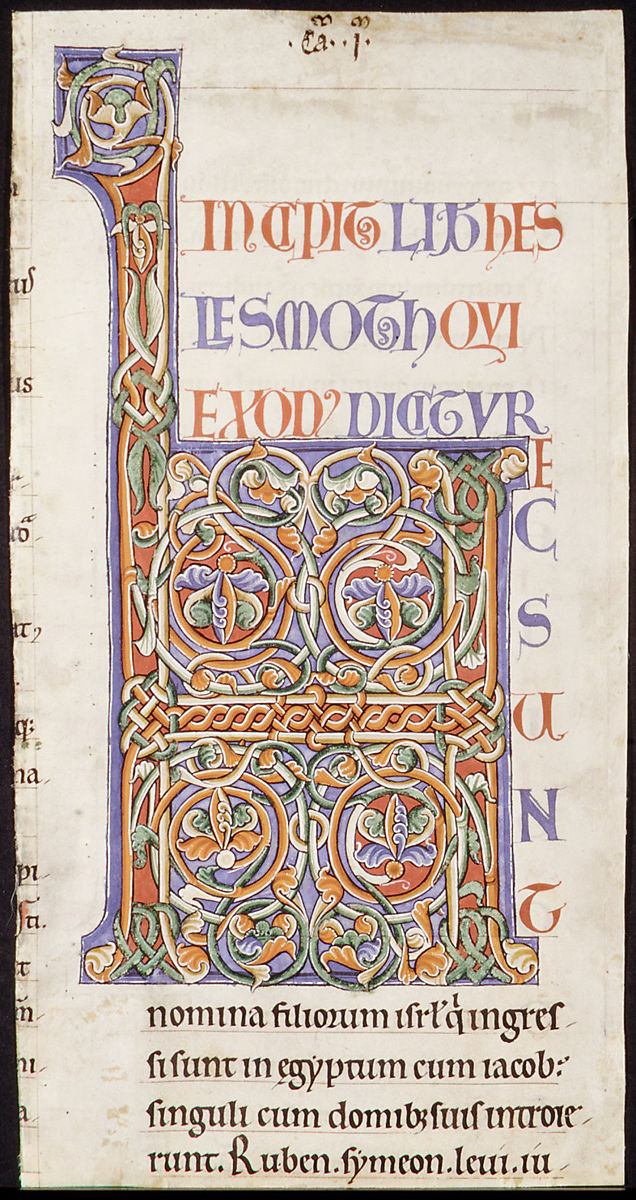 .Ca. .I.
INCIPIT LIB hES
LESMOTh QVI
EXODꝰ DICITVR
H
E
C
S
U
N
T
nomina filiorum isrł qͥ ingres-
si sunt in ęgyptum cum iacob:
singuli cum domibꝫ suis introie-
runt. Ruben. symeon. leui. iu